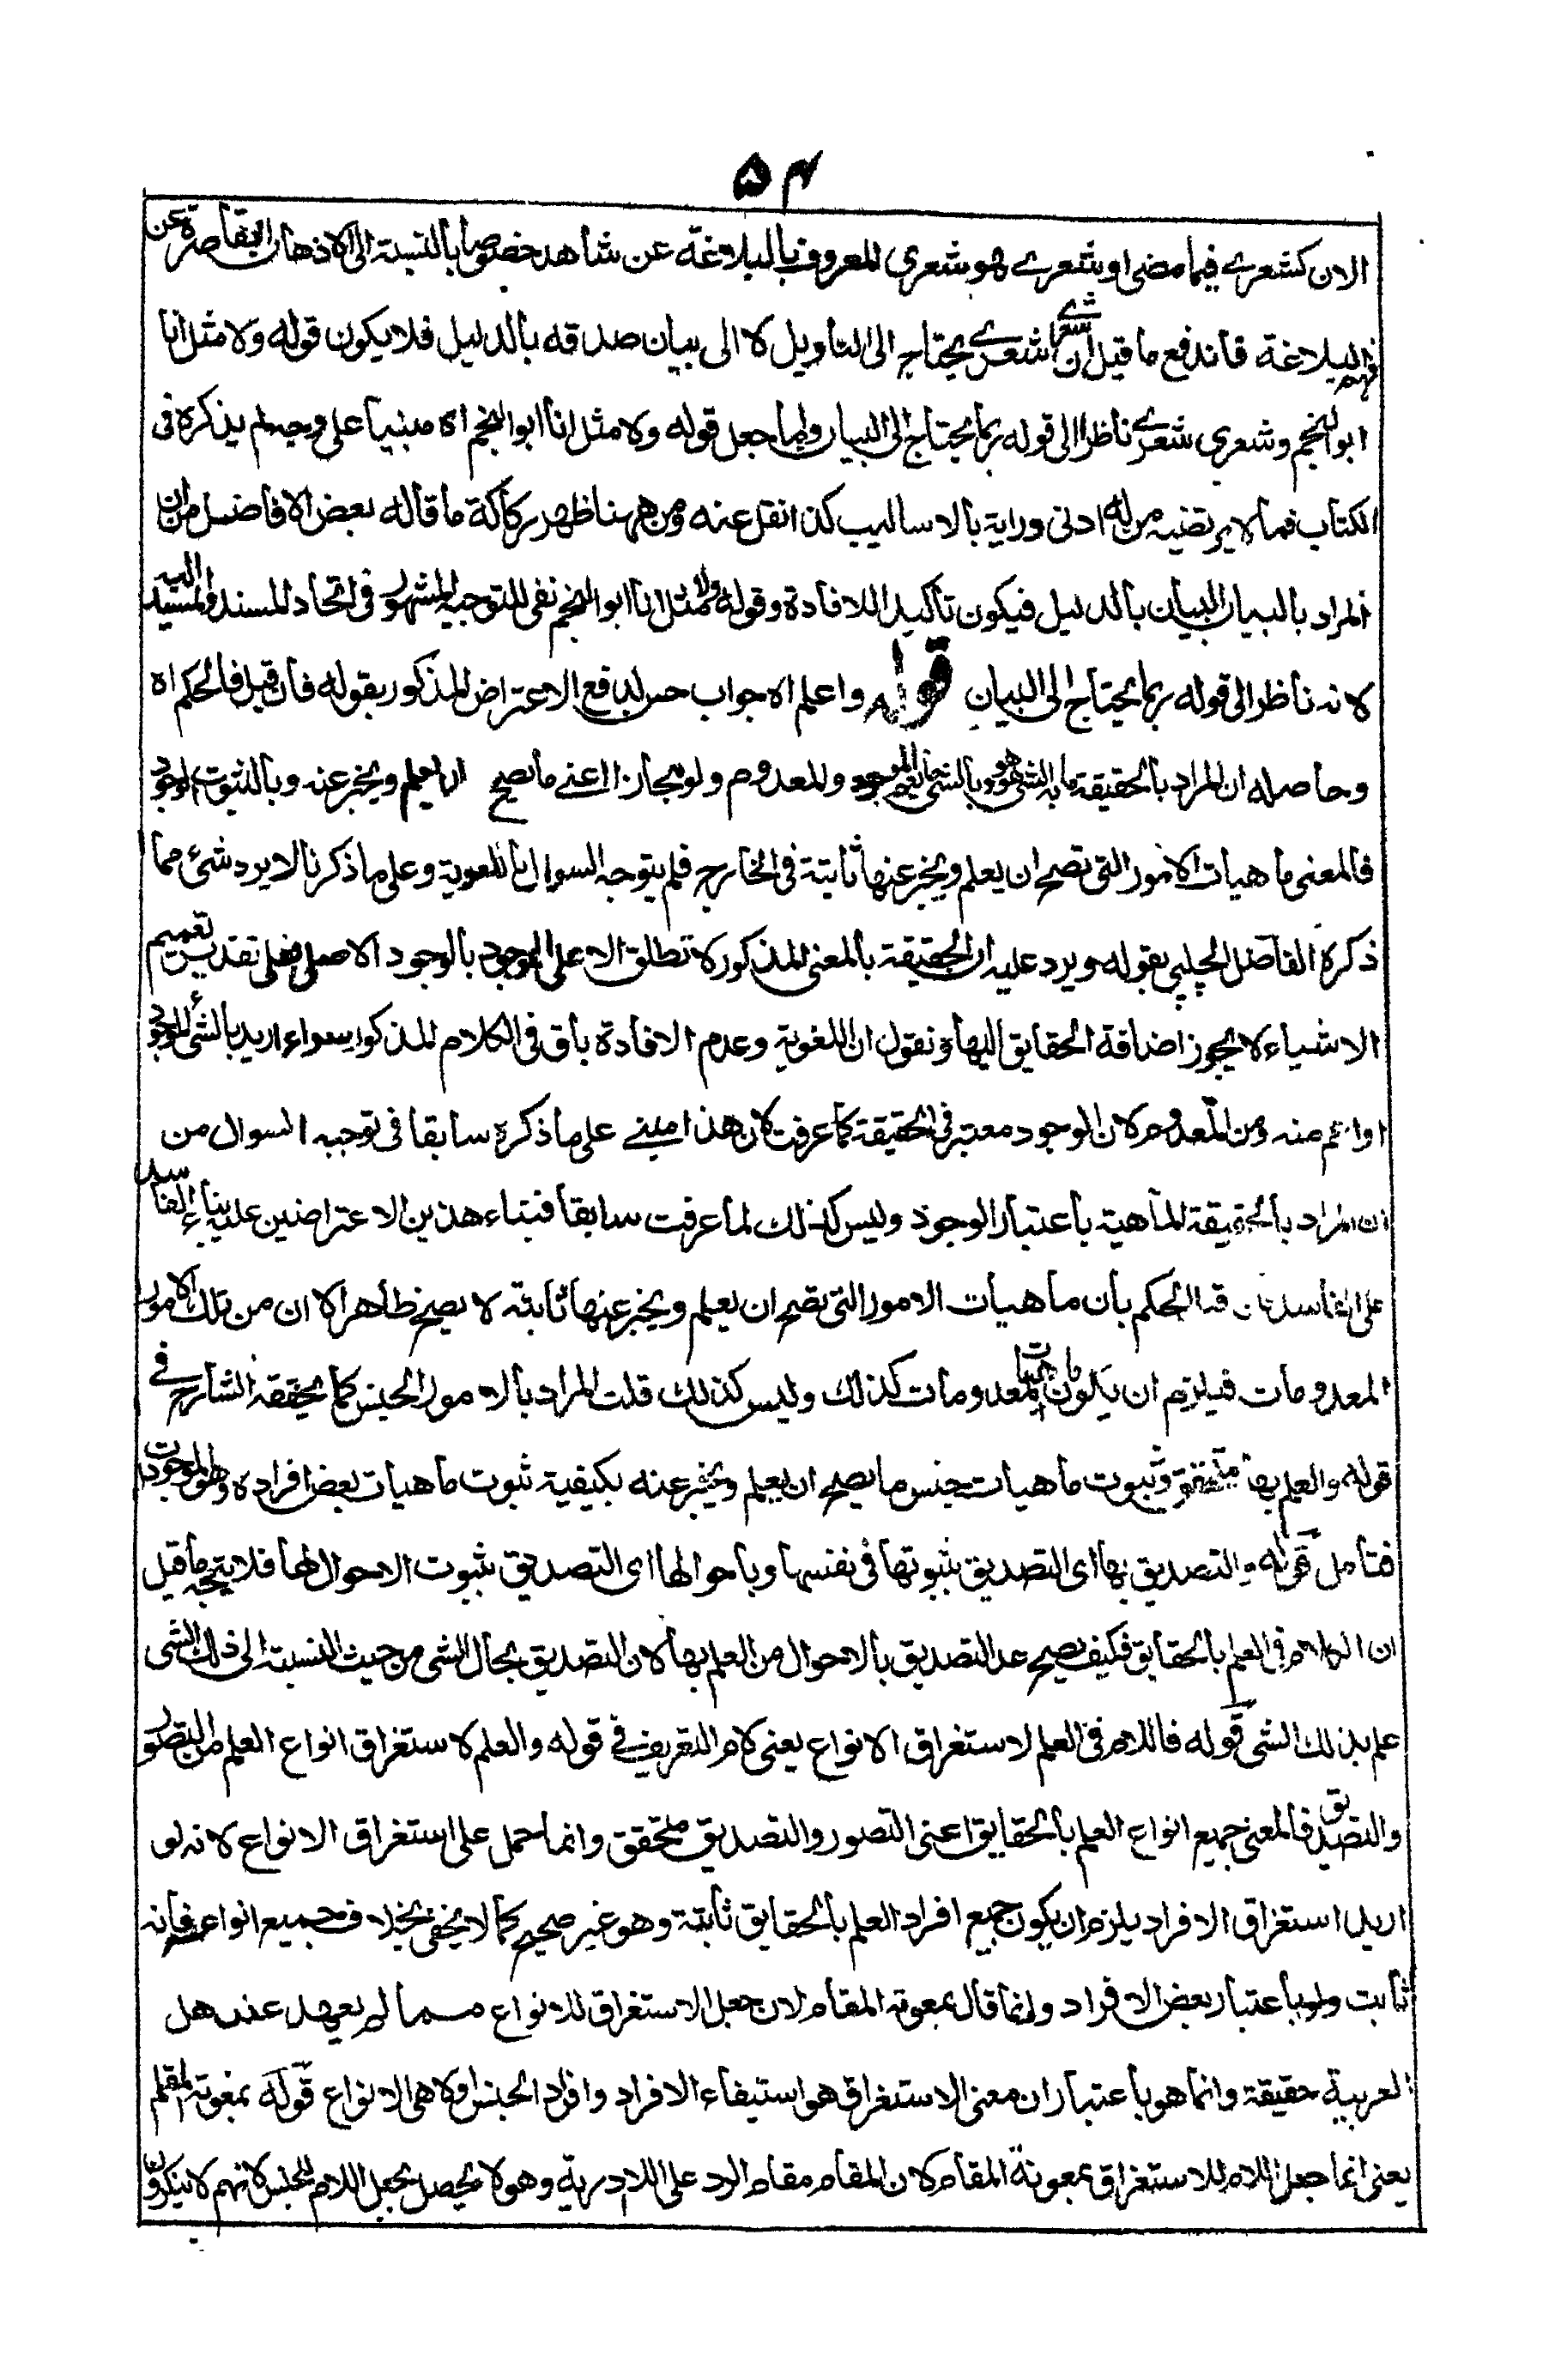 ۵۴
الان كشعرے فيما مضى او شعرے هو شعري المعروف بالبلاغة عن شاهد خصوصا بالنسبة الى الاذهان القاصرة عن
فهم البلاغة فاندفع ما قيل ان شعرى شعرے يحتاج الى التاويل لا الى بيان صدقه بالدليل فلا يكون قوله ولا مثل انا
ابو النجم وشعري شعرے ناظرا الى قوله ربما يحتاج الى البيان واما جعل قوله ولا مثل انا ابو النجم اه مبنيا على وجه لم يذكره فى
الكتاب فما لا يرتضيه من له ادنى دراية بالاساليب كذا نقل عنه ومن ههنا ظهر ركاكة ما قاله بعض الافاضل من ان
المراد بالبيان البيان بالدليل فيكون تاكيدا للافادة وقوله ولا مثل انا ابو النجم نفى للتوجيه المشهور فى اتحاد المسند والمسند اليه
لانه ناظر الى قوله ربما يحتاج الى البيان قوله واعلم اه جواب حسن لدافع الاعتراض المذكور بقوله فان قيل فالحكم اه
وحاصله ان المراد بالحقيقة ما به الشى هو هو وبالشى ما يعم الموجود والمعدوم ولو مجازا اعنے ما يصح ان يعلم ويخبر عنه وبالثبوت الوجود
فالمعنى ماهيات الامور التى تصح ان يعلم ويخبر عنها ثابتة فى الخارج فلم يتوجه السوال باللغوية وعلى ما ذكرنا لا يرد شئ مما
ذكره الفاضل الچلپى بقوله ويرد عليه ان الحقيقة بالمعنى المذكور لا تطلق الا على الموجود بالوجود الاصلى فعلى تقدير تعميم
الاشياء لا يجوز اضافة الحقايق اليها ونقول ان اللغوية وعدم الافادة باق فى الكلام المذكور سواء اريد بالشئ الموجود
او اعم منه ومن المعدوم لان الوجود معتبر فى الحقيقة كما عرفت لان هذا مبنے على ما ذكره سابقا فى توجيه السوال من
ان المراد بالحقيقة الماهية باعتبار الوجود وليس كذلك لما عرفت سابقا فبناء هذين الاعتراضين عليه بناء الفاسد
على الفاسد فان قلت الحكم بان ماهيات الامور التى يصح ان يعلم ويخبر عنها ثابتة لا يصح ظاهرا لان من تلك الامور
المعدومات فيلزم ان يكون ماهيات المعدومات كذلك وليس كذلك قلت المراد بالامور الجنس كما يحققه الشارح فے
قوله والعلم بها متحقق وثبوت ماهيات جنس ما يصح ان يعلم ويخبر عنه بكيفية ثبوت ماهيات بعض افراده وهو الموجودات
فتامل قوله والتصديق بها اى التصديق بثبوتها فى نفسها وباحوالها اى التصديق بثبوت الاحوال لها فلا يتجه ما قيل
ان الكلام فى العلم بالحقايق فكيف يصح عد التصديق بالاحوال من العلم بها لان التصديق بحال الشى من حيث النسبة الى ذلك الشى
علم بذلك الشى قوله فاللام فى العلم لاستغراق الانواع يعنى لام التعريف فے قوله والعلم لاستغراق انواع العلم من التصور
والتصديق فالمعنى جميع انواع العلم بالحقايق اعنى التصور والتصديق متحقق وانما حمل على استغراق الانواع لانه لو
اريد استغراق الافراد يلزم ان يكون جميع افراد العلم بالحقايق ثابتة وهو غير صحيح كما لا يخفى بخلاف جميع انواعه فانه
ثابت ولو باعتبار بعض الافراد وانما قال بمعونة المقام لان جعل الاستغراق للانواع مما لم يعهد عند اهل
العربية حقيقة وانما هو باعتبار ان معنى الاستغراق هو استيفاء الافراد وافراد الجنس اولا هى الانواع قوله بمعونة المقام
يعنى انما جعل اللام للاستغراق بمعونة المقام لان المقام مقام الرد على اللاادرية وهو لا يحصل بجعل اللام للجنس لانهم لا ينكرون